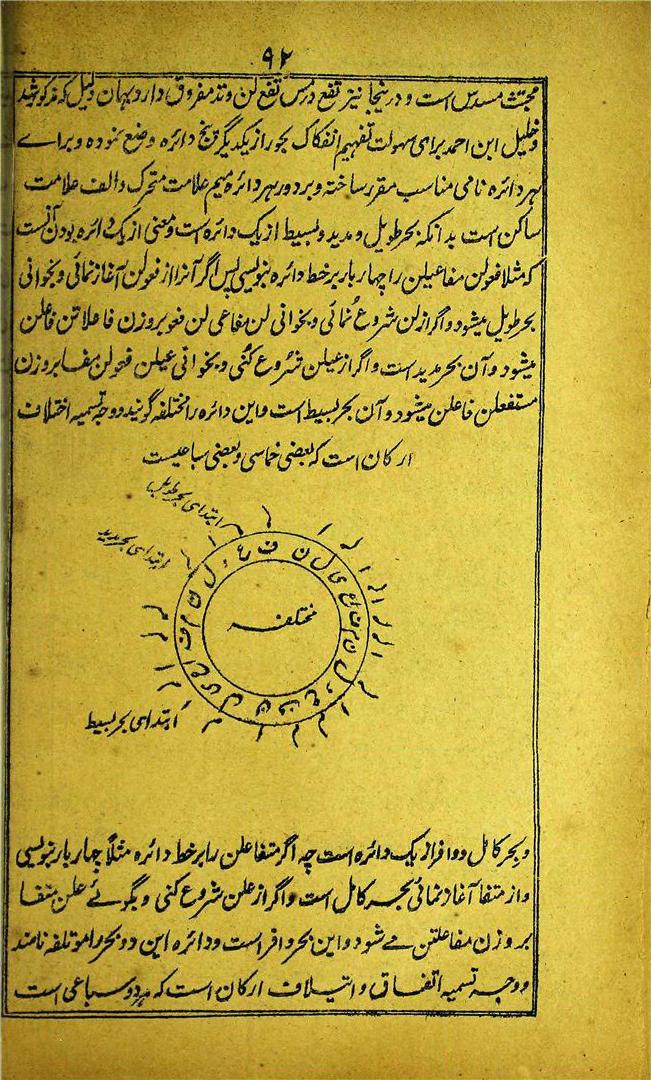 ۹۲
مجتث مسدس است و درینجا نیز تفع در مس تفع لن وتد مفروق دارد بهان دلیل که مذکور شد
و خلیل ابن احمد برای سهولت تفهیم انفکاک بحور از یکدیگر پنج دائره وضع نموده و براے
هر دائره نامی مناسب مقرر ساخته و بر دور هر دائره میم علامت متحرک و الف علامت
ساکن است بدانکه بحر طویل و مدید و بسیط از یک دائره است و معنی از یک دائره بودن آنست
که مثلا فعولن مفاعیلن را چهار بار بر خط دائره بنویسی پس اگر آنرا از فعولن آغاز نمائی و بخوانی
بحر طویل میشود و اگر از لن شروع نمائی و بخوانی لن مفاعی لن فعو بر وزن فاعلاتن فاعلن
میشود و آن بحر مدید است و اگر از عیلن شروع کنی و بخوانی عیلن فعولن مفا بر وزن
مستفعلن فاعلن میشود و آن بحر بسیط است و این دائره را مختلفه گویند و وجه تسمیه اختلاف
ارکان است که بعضی خماسی و بعضی سباعیست
ابتدای بحر طویل
ابتدای بحر مدید
مختلفه
ابتدای بحر بسیط
و بحر کامل و وافر از یک دائره است چه اگر متفاعلن را بر خط دائره مثلاً چهار بار بنویسی
و از متفا آغاز نمائی بحر کامل است و اگر از علن شروع کنی و بگوئے علن متفا
بر وزن مفاعلتن مے شود و این بحر وافر است و دائره این دو بحر را موتلفه نامند
و وجه تسمیه اتفاق و ایتلاف ارکان است که هر دو سباعی است